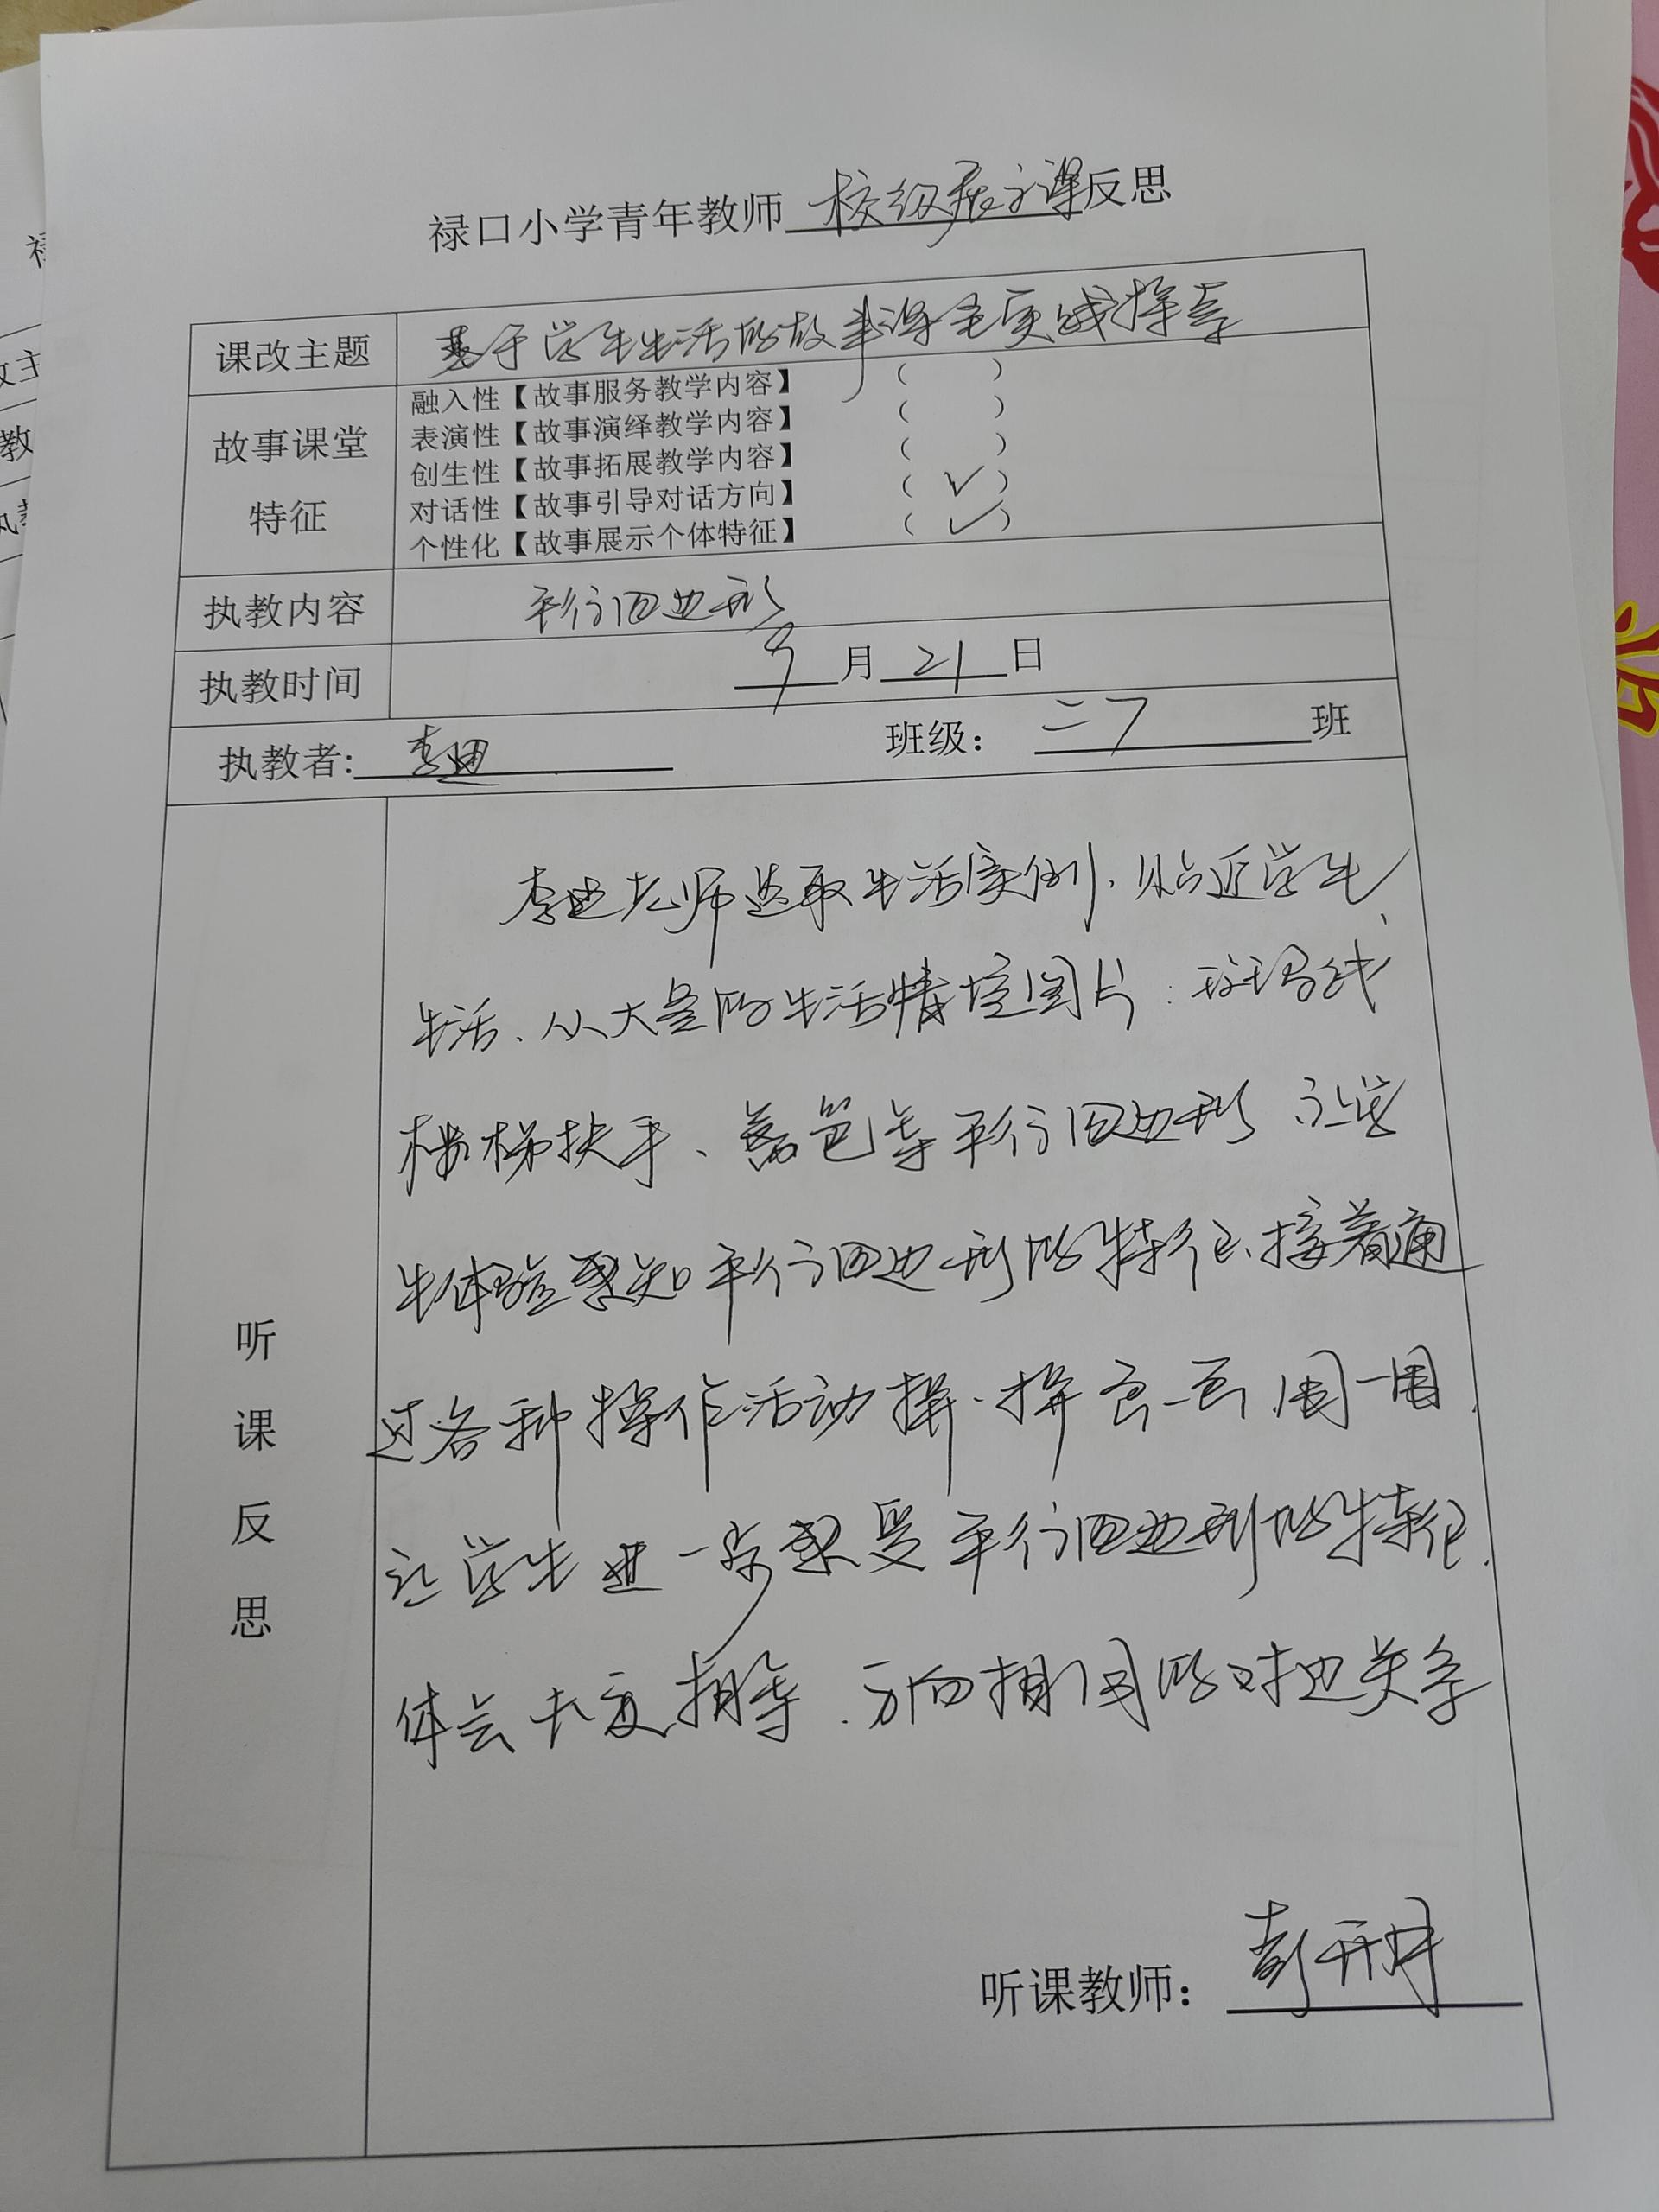 禄口小学青年教师校级展示课反思
课改主题 基于学生生活的故事课堂实践探索
故事课堂特征
融入性【故事服务教学内容】 （ ）
表演性【故事演绎教学内容】 （ ）
创生性【故事拓展教学内容】 （ ）
对话性【故事引导对话方向】 （ ✓ ）
个性化【故事展示个体特征】 （ ✓ ）
执教内容 平行四边形
执教时间 9月21日
执教者：李迪 班级： 班
听课反思
李迪老师选取生活实例，贴近学生
生活、从大量的生活情境图片：斑马线
楼梯扶手、篱笆等平行四边形 让学
生体验感知平行四边形的特征、接着通
过各种操作活动拼一拼 画一画 围一围，
让学生进一步感受平行四边形的特征．
体会长度相等．方向相同的对边关系
听课教师：